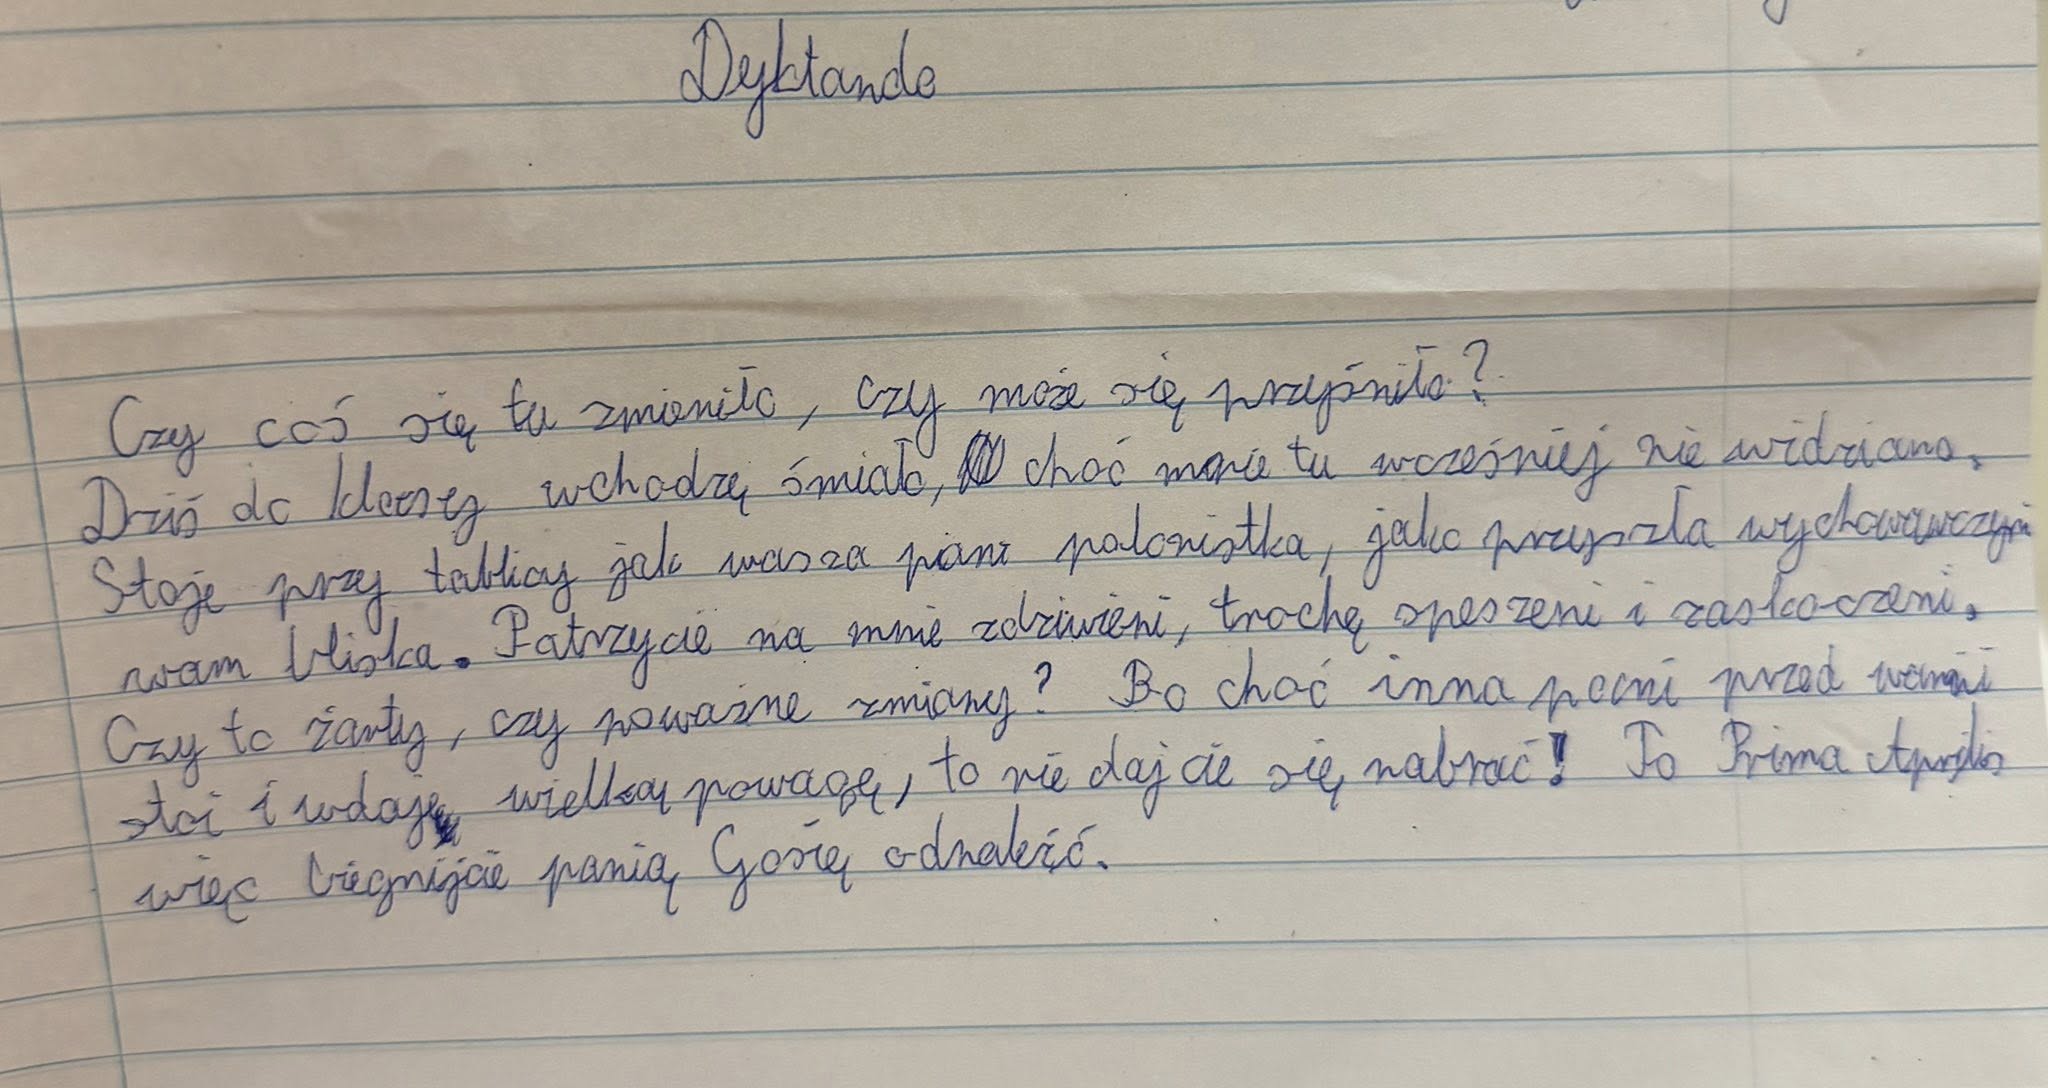 Dyktando
Czy coś się tu zmieniło, czy może się przyśniło?
Dziś do klasy wchodzę śmiało, choć mnie tu wcześniej nie widziano.
Stoję przy tablicy jak wasza pani polonistka, jako przyszła wychowawczyni
wam bliska. Patrzycie na mnie zdziwieni, trochę speszeni i zaskoczeni.
Czy to żarty, czy poważne zmiany? Bo choć inna pani przed wami
stoi i udaje wielką powagę, to nie dajcie się nabrać! To Prima Aprilis
więc biegnijcie panią Gosię odnaleźć.